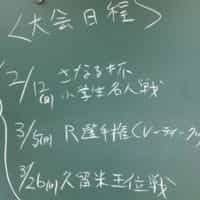 <大会日程>
2/12(日) さなる杯
小学生名人戦
3/5(日) R選手権(レーティング
3/26(日) 久留米王位戦